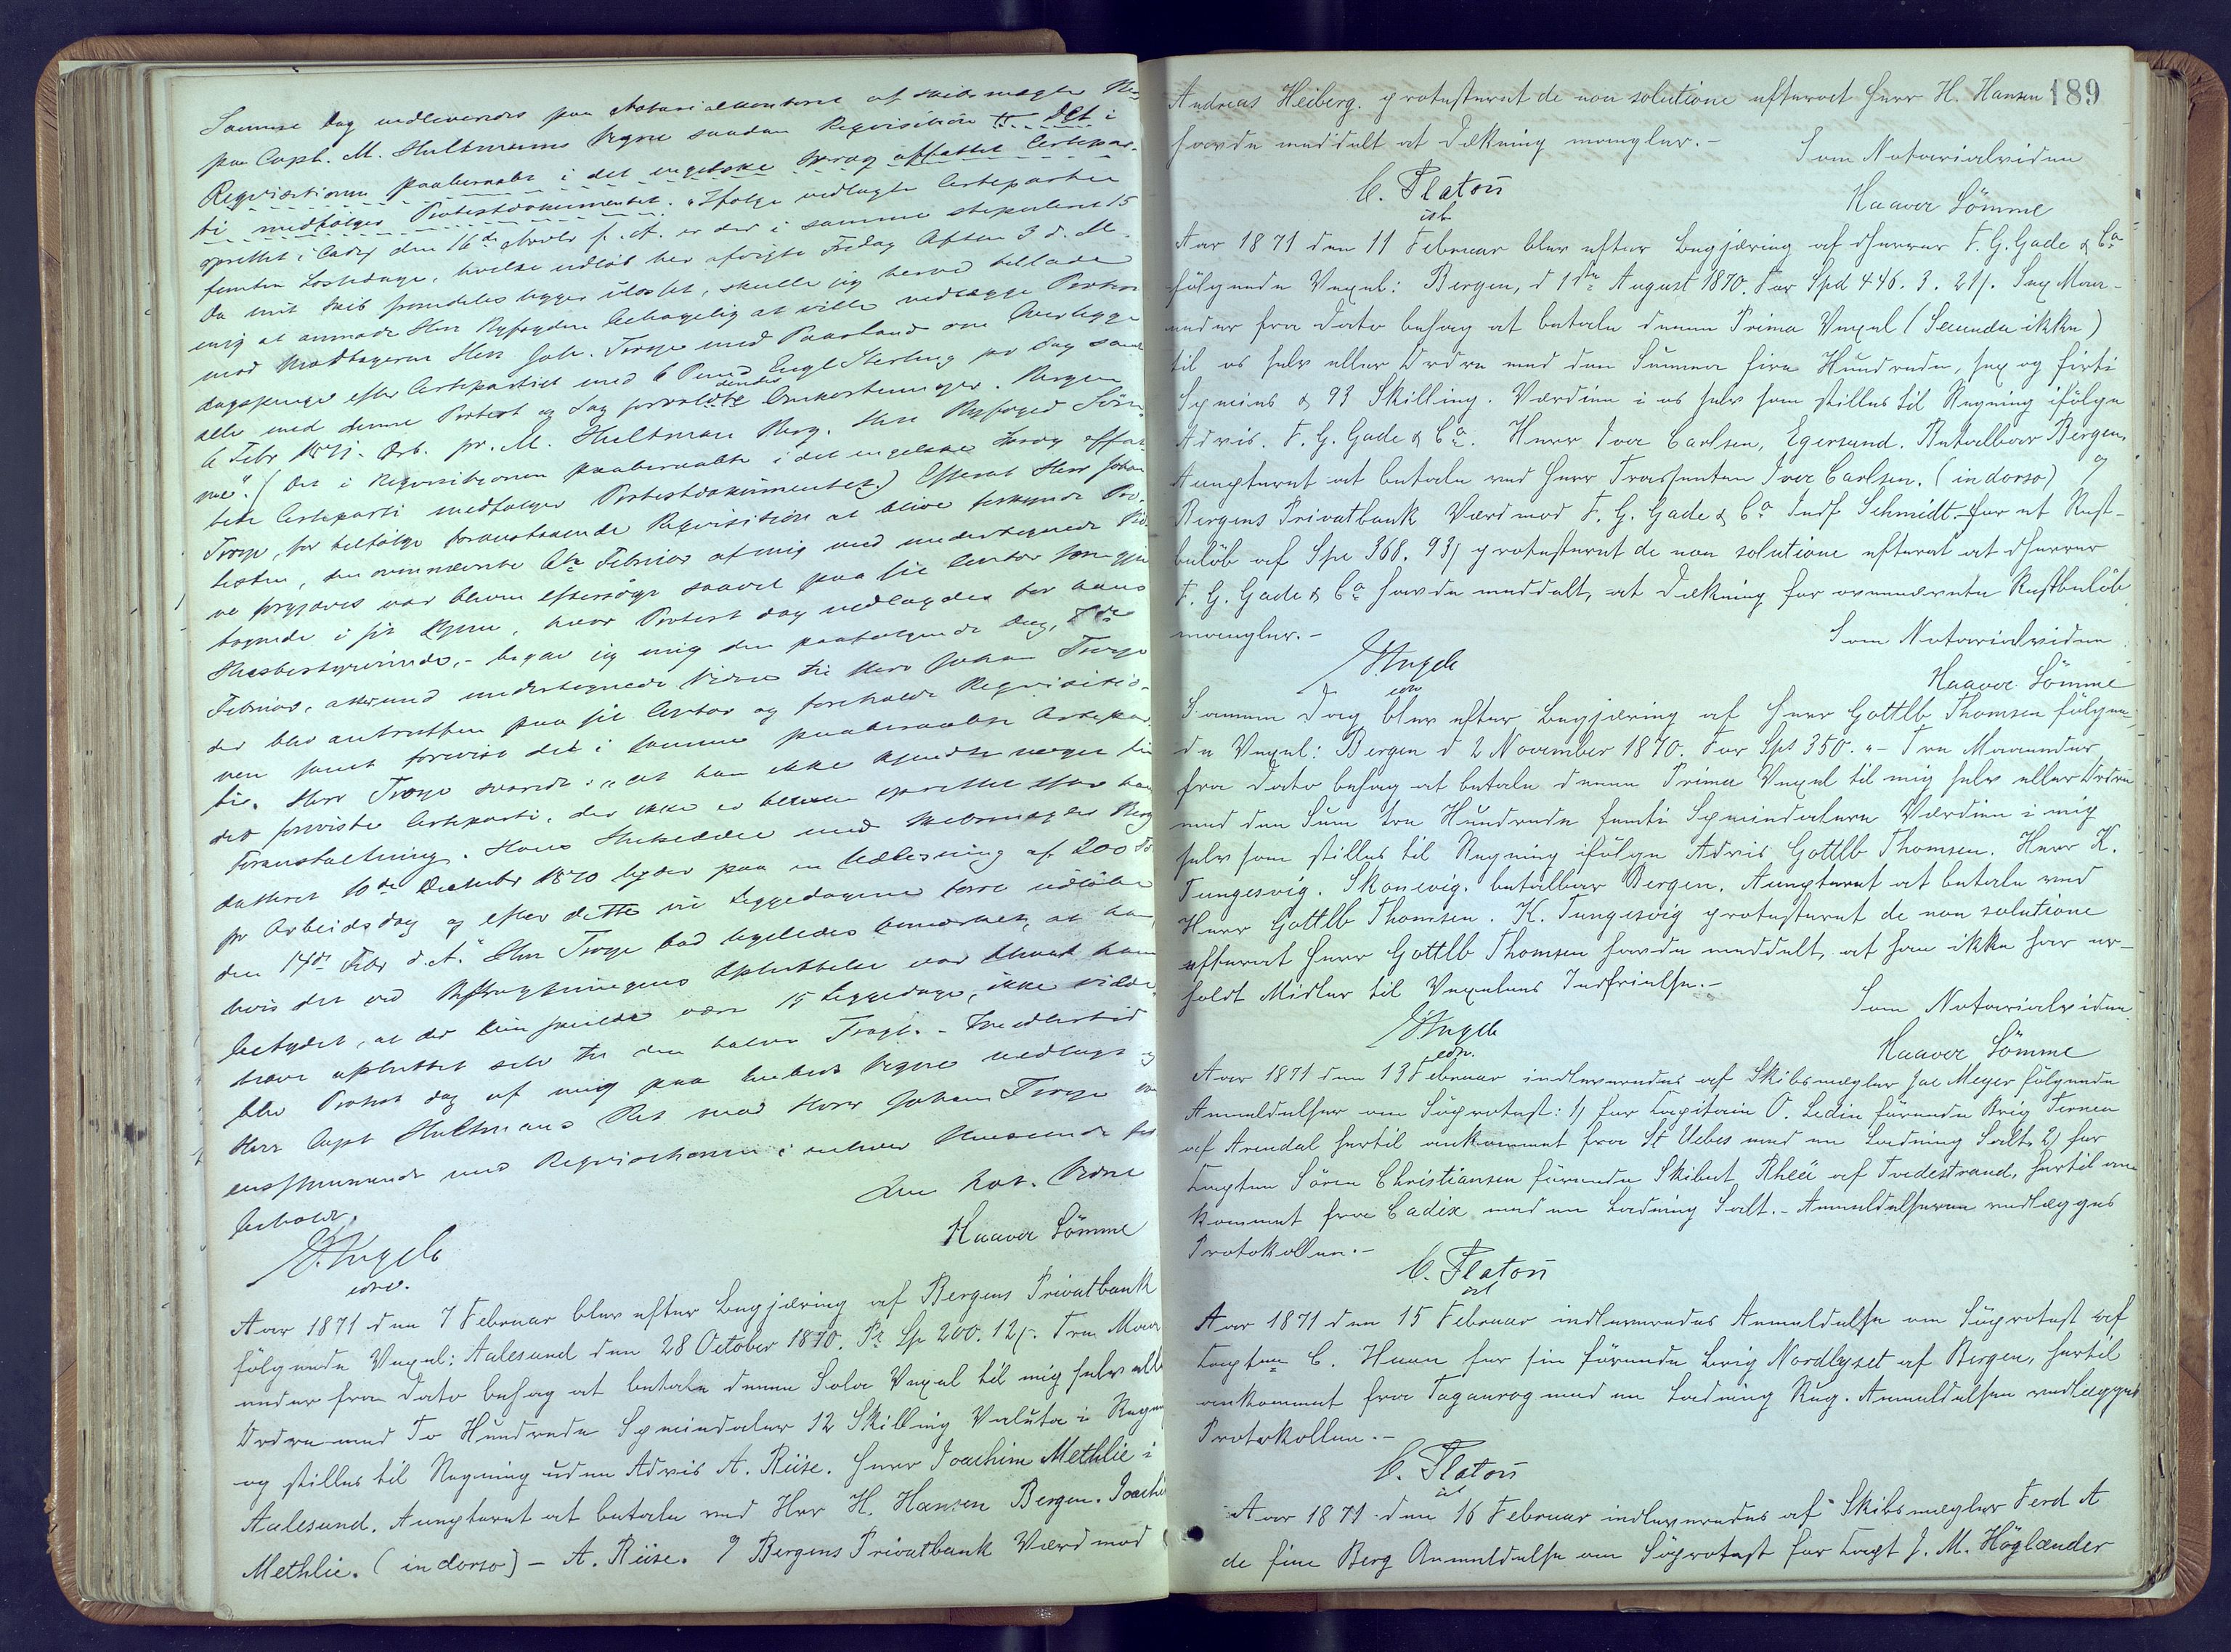 Samme Dag indleveredes paa Notarialkontoret af Skibsmægler Berg
paa Capt. M. Hultmans Vegne saadan Reqvisition Det i
Reqvisitionen paaberaabte i det engelske Sprog affattet Certepar-
ti medfølger Protestdokumentet. "Ifølge vedlagte Certepartie
oprettet i Cadix den 16de Novbr f. A. er der i samme stipuleret 15
femten Lossedage, hvilke udløb her afvigte Fredag Aften 3 d. M.
Da mit Skib fremdeles ligger ulosset, skulle jeg herved tillade
mig at anmode Herr Byfogden behagelig at ville nedlægge Protest
mod Modtageren Herr Joh. Troye med Paastand om Overligge-
dagspenge efter Certepartiet med 6 Pund Engl Sterling pr Dag samt
alle med denne Protest og Sag forvoldte Omkostninger. Bergen
6 Febr 1871. Ærb. pr. M. Hultman Berg. Herr Byfoged Søm-
me". (Det i Reqvisitionen paaberaabte i det engelske Sprog affat-
tede Certeparti medfølger Protestdokumentet) Efterat Herr Johan
Troye, for tilfølge foranstaaende Reqvisition at blive forkyndt Pro-
testen, den ovennævnte 6te Februar af mig med undertegnede Vid-
ne forgjæves var bleven eftersøgt saavel paa sit Contor som
i sit Hjem, hvor Protest dog nedlagdes for hans
Huusbestyrerinde, - begav jeg mig den paafølgende Dag, 7de
Februar, atter med undertegnede Vidne til Herr Johan Troye
der blev antruffen paa sit Contor og foreholdt Reqvisitio-
nen samt forevist det i samme paaberaabte Certepar-
ti. Herr Troye svarede: "at han ikke kjendte noget til
det foreviste Certeparti, der ikke er bleven oprettet efter hans
Foranstaltning. Hans Slutseddel med Skibsmægler Berg
datteret 10de December 1870 lyder paa en Udlosning af 200 Td
pr Arbeidsdag og efter dette vil Liggedagene først udløbe
den 14de Febr d. A." Herr Troye bad ligeledes bemærket, at han
hvis det ved Befragtningens Afsluttelse var bleven ham
betydet, at der kun skulde være 15 Liggedage, ikke vilde
have afsluttet selv til den halve Fragt. - Imedlertid
blev Protest dog af mig paa Embeds Vegne nedlagt og
Herr Capt Hultmans Ret mod Herr Johan Troye over-
ensstemmende med Reqvisitionen i enhver Henseende for-
beholdt.
Som Not. Vidne
Haaver Sömme
E. Angell
edsv.
Aar 1871 den 7 Februar blev efter Begjæring af Bergens Privatbank
følgende Vexel: Aalesund den 28 October 1870. Pr Sp 200. 12/-. Tre Maa-
neder fra Dato behag at betale denne Sola Vexel til mig selv eller
Ordre med To Hundrede Speciedaler 12 Skilling Valuta i Regning
og stilles til Regning uden Advis A. Riise. Herr Joachim Methlie i
Aalesund. Accepteret at betale ved Herr H. Hansen Bergen. Joachim
Methlie. (in dorso) - A. Riise. og Bergens Privatbank Værd mod
189
Andreas Heiberg. protesteret de non solutione efterat Herr H. Hansen
havde meddelt at Dækning mangler. -
Som Notarialvidne
C. Platou
cst
Haaver Sömme
Aar 1871 den 11 Februar blev efter Begjæring af Dherrer F. G. Gade & Co
følgende Vexel: Bergen, d 11te August 1870. For Spd 446. 3. 21/. Sex Maa-
neder fra Dato behag at betale denne Prima Vexel (Secunda ikke)
til os selv eller Ordre med den Summa fire Hundrede, sex og firti
Species & 93 Skilling. Værdien i os selv som stilles til Regning ifølge
Advis. F. G. Gade & Co. Herr Iver Carlsen, Egersund. Betalbar Bergen.
Accepteret at betale ved Herr Trassenten Iver Carlsen. (in dorso) og
Bergens Privatbank Værd mod F. G. Gade & Co Indf Schmidt. for et Rest-
beløb af Spe 368. 93/ protesteret de non solutione efterat at Dherrer
F. G. Gade & Co havde meddelt, at Dækning for ovennævnte Restbeløb
mangler. -
Som Notarialvidne
E. Angell
edsv
Haaver Sömme
Samme Dag blev efter Begjæring af Herr Gottlb Thomsen følgen-
de Vexel: Bergen d 2 November 1870. For Sps 350. " - Tre Maaneder
fra Dato behag at betale denne Prima Vexel til mig selv eller Ordre
med den Sum tre Hundrede femti Speciedalere Værdien i mig
selv som stilles til Regning ifølge Advis Gottlb Thomsen. Herr K.
Tungesvig. Skonevig. betalbar Bergen. Accepteret at betale ved
Herr Gottlb Thomsen. K. Tungesvig protesteret de non solutione
efterat Herr Gottlb Thomsen havde meddelt, at han ikke har er-
holdt Midler til Vexelens Indfrielse. -
Som Notarialvidne
E. Angell
edsv.
Haaver Sömme
Aar 1871 den 13 Februar indleveredes af Skibsmægler Jac Meyer følgende
Anmeldelser om Søprotest: 1) for Capitain O. Ledin førende Brig Ternen
af Arendal hertil ankommet fra St Uebes med en Ladning Salt. 2) for
Capten Sören Christiansen førende Skibet Rheä af Tvedestrand, hertil an-
kommet fra Cadix med en Ladning Salt. - Anmeldelserne vedlægges
Protokollen. -
C. Platou
cst
Aar 1871 den 15 Februar indleveredes Anmeldelse om Søprotest af
Capten C. Haan for sin førende Brig Nordlyset af Bergen, hertil
ankommet fra Taganrog med en Ladning Rug. Anmeldelsen vedlægges
Protokollen. -
C. Platou
cst
Aar 1871 den 16 Februar indleveredes af Skibsmægler Ferd A
de fine Berg Anmeldelse om Søprotest for Capt J. M. Höglænder